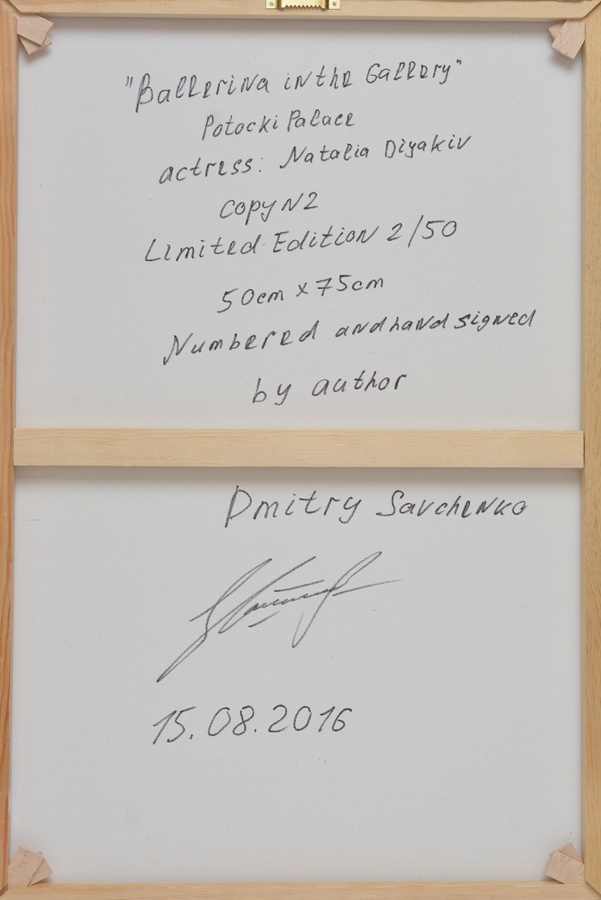 "Ballerina in the Gallery"
Potocki Palace
actress: Natalia Diyakiv
copy N2
Limited Edition 2/50
50cm x 75cm
Numbered and hand signed
by author
Dmitry Savchenko
15.08.2016